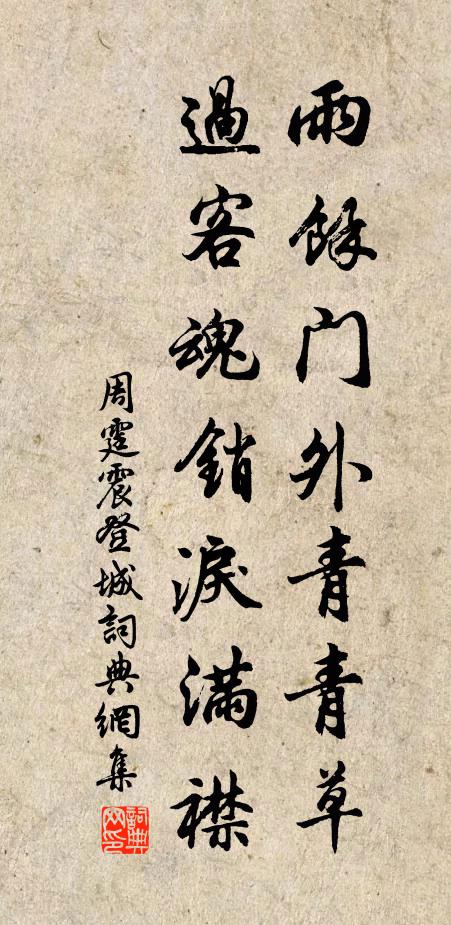 雨餘门外青青草
過客魂銷淚滿襟
周霆震登城詞典網集
詞典网印